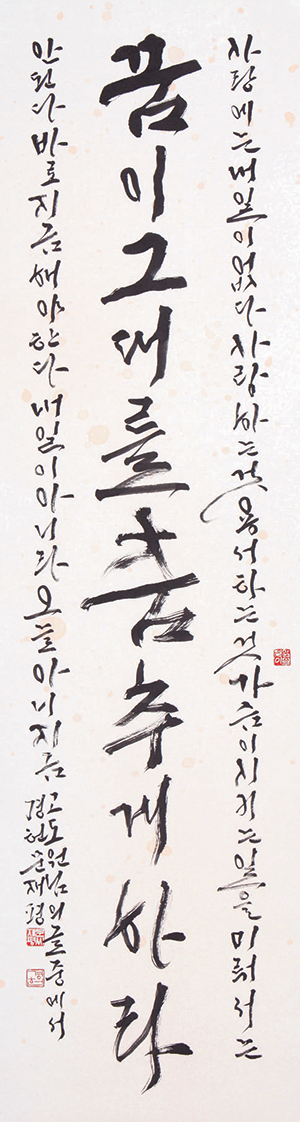 꿈이 그대를 춤추게 하라
사랑에는 내일이 없다 사랑하는 것 용서하는 것 가슴이 시키는 일을 미뤄서는
안된다 바로 지금 해야 한다 내일이 아니라 오늘 아니 지금
고도원님의 글 중에서